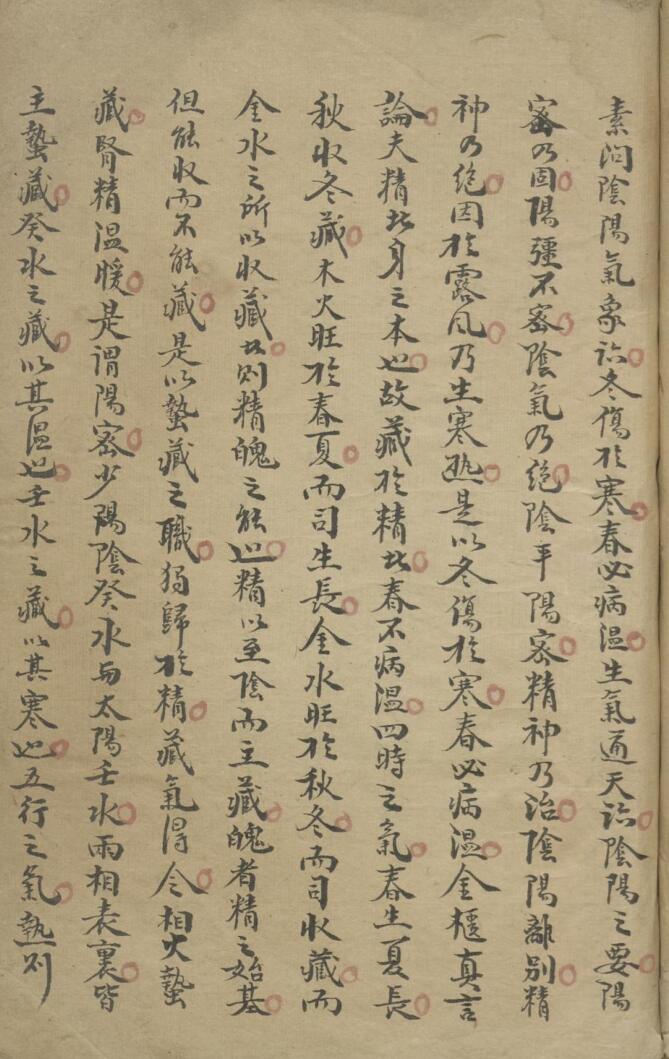 素问陰陽氣象論冬傷於寒春必病溫生氣通天論陰陽之要陽
密乃固陽彊不密陰氣乃絕陰平陽密精神乃治陰陽離別精
神乃絕因於露風乃生寒熱是以冬傷於寒春必病溫金櫃真言
論夫精者身之本也故藏於精者春不病溫四時之氣春生夏長
秋收冬藏木火旺於春夏而司生長金水旺於秋冬而司收藏而
金水之所以收藏者則精魄之能也精以至陰而主藏魄者精之始基
但能收而不能藏是以蟄藏之職獨歸於精藏氣得令相火蟄
藏腎精溫暖是謂陽密少陽陰癸水与太陽壬水兩相表裏皆
主蟄藏癸水之藏以其溫也壬水之藏以其寒也五行之氣熱则